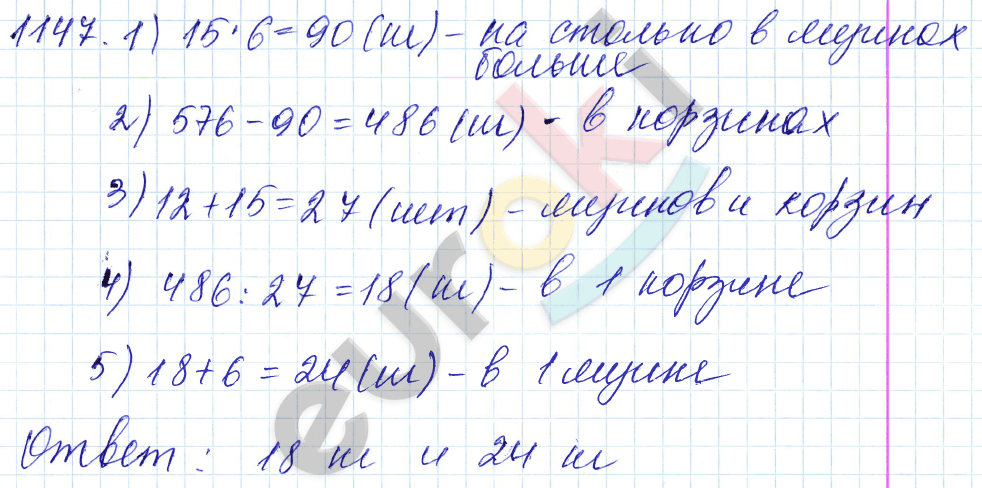 1147. 1) 15·6=90(ш) - на столько в ящиках
больше
2) 576-90=486(ш) - в корзинах
3) 12+15=27(шт) - ящиков и корзин
4) 486:27=18(ш) - в 1 корзине
5) 18+6=24(ш) - в 1 ящике
Ответ: 18 ш и 24 ш
euroki